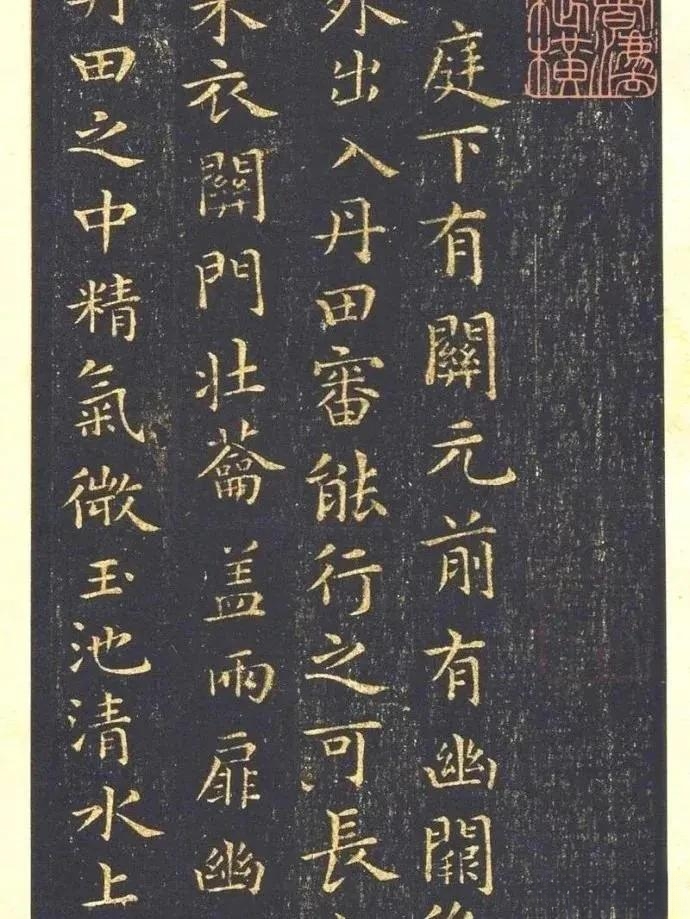 庭下有關元前有幽闕
外出入丹田審能行之可長
衣關門壯蘥盖兩扉幽
丹田之中精氣微玉池清水上